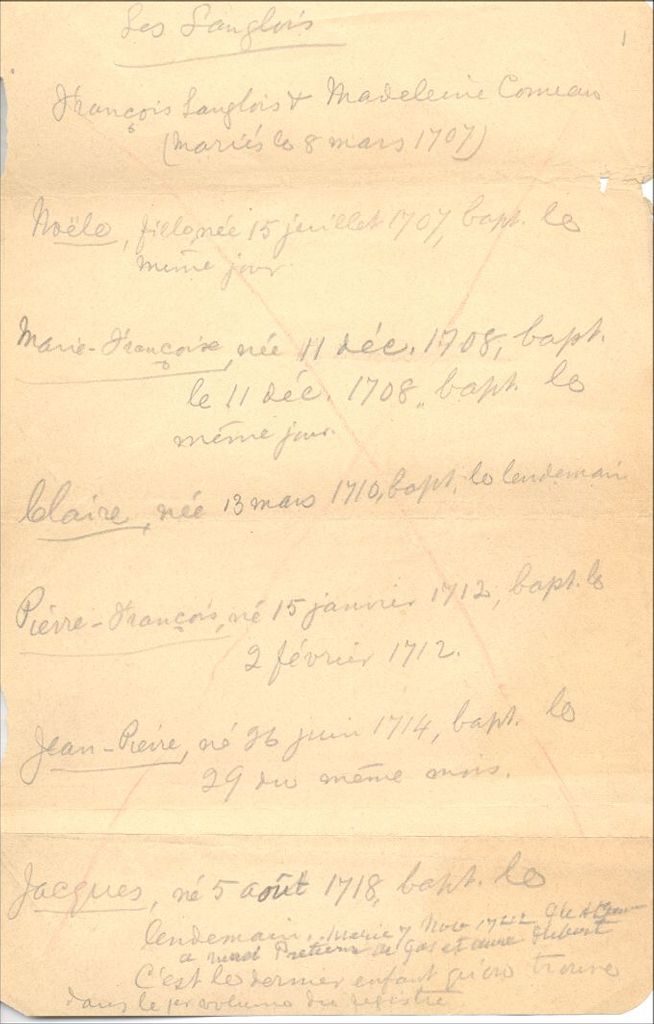 Les Langlois
1
François Langlois & Madeleine Comeau
(Mariés le 8 mars 1707)
Noële, fille, née 15 juillet 1707, bapt. le
même jour
Marie-Françoise, née 11 déc. 1708, bapt.
le 11 déc. 1708, bapt. le
même jour.
Claire, née 13 mars 1710, bapt. le lendemain
Pierre-François, né 15 janvier 1712, bapt. le
2 février 1712.
Jean-Pierre, né 26 juin 1714, bapt. le
29 du même mois.
Jacques, né 5 août 1718, bapt. le
lendemain. Marié 7 Nov 1742
a de et Hébert
C'est le dernier enfant qu'on trouve
dans le 1er volume du registre